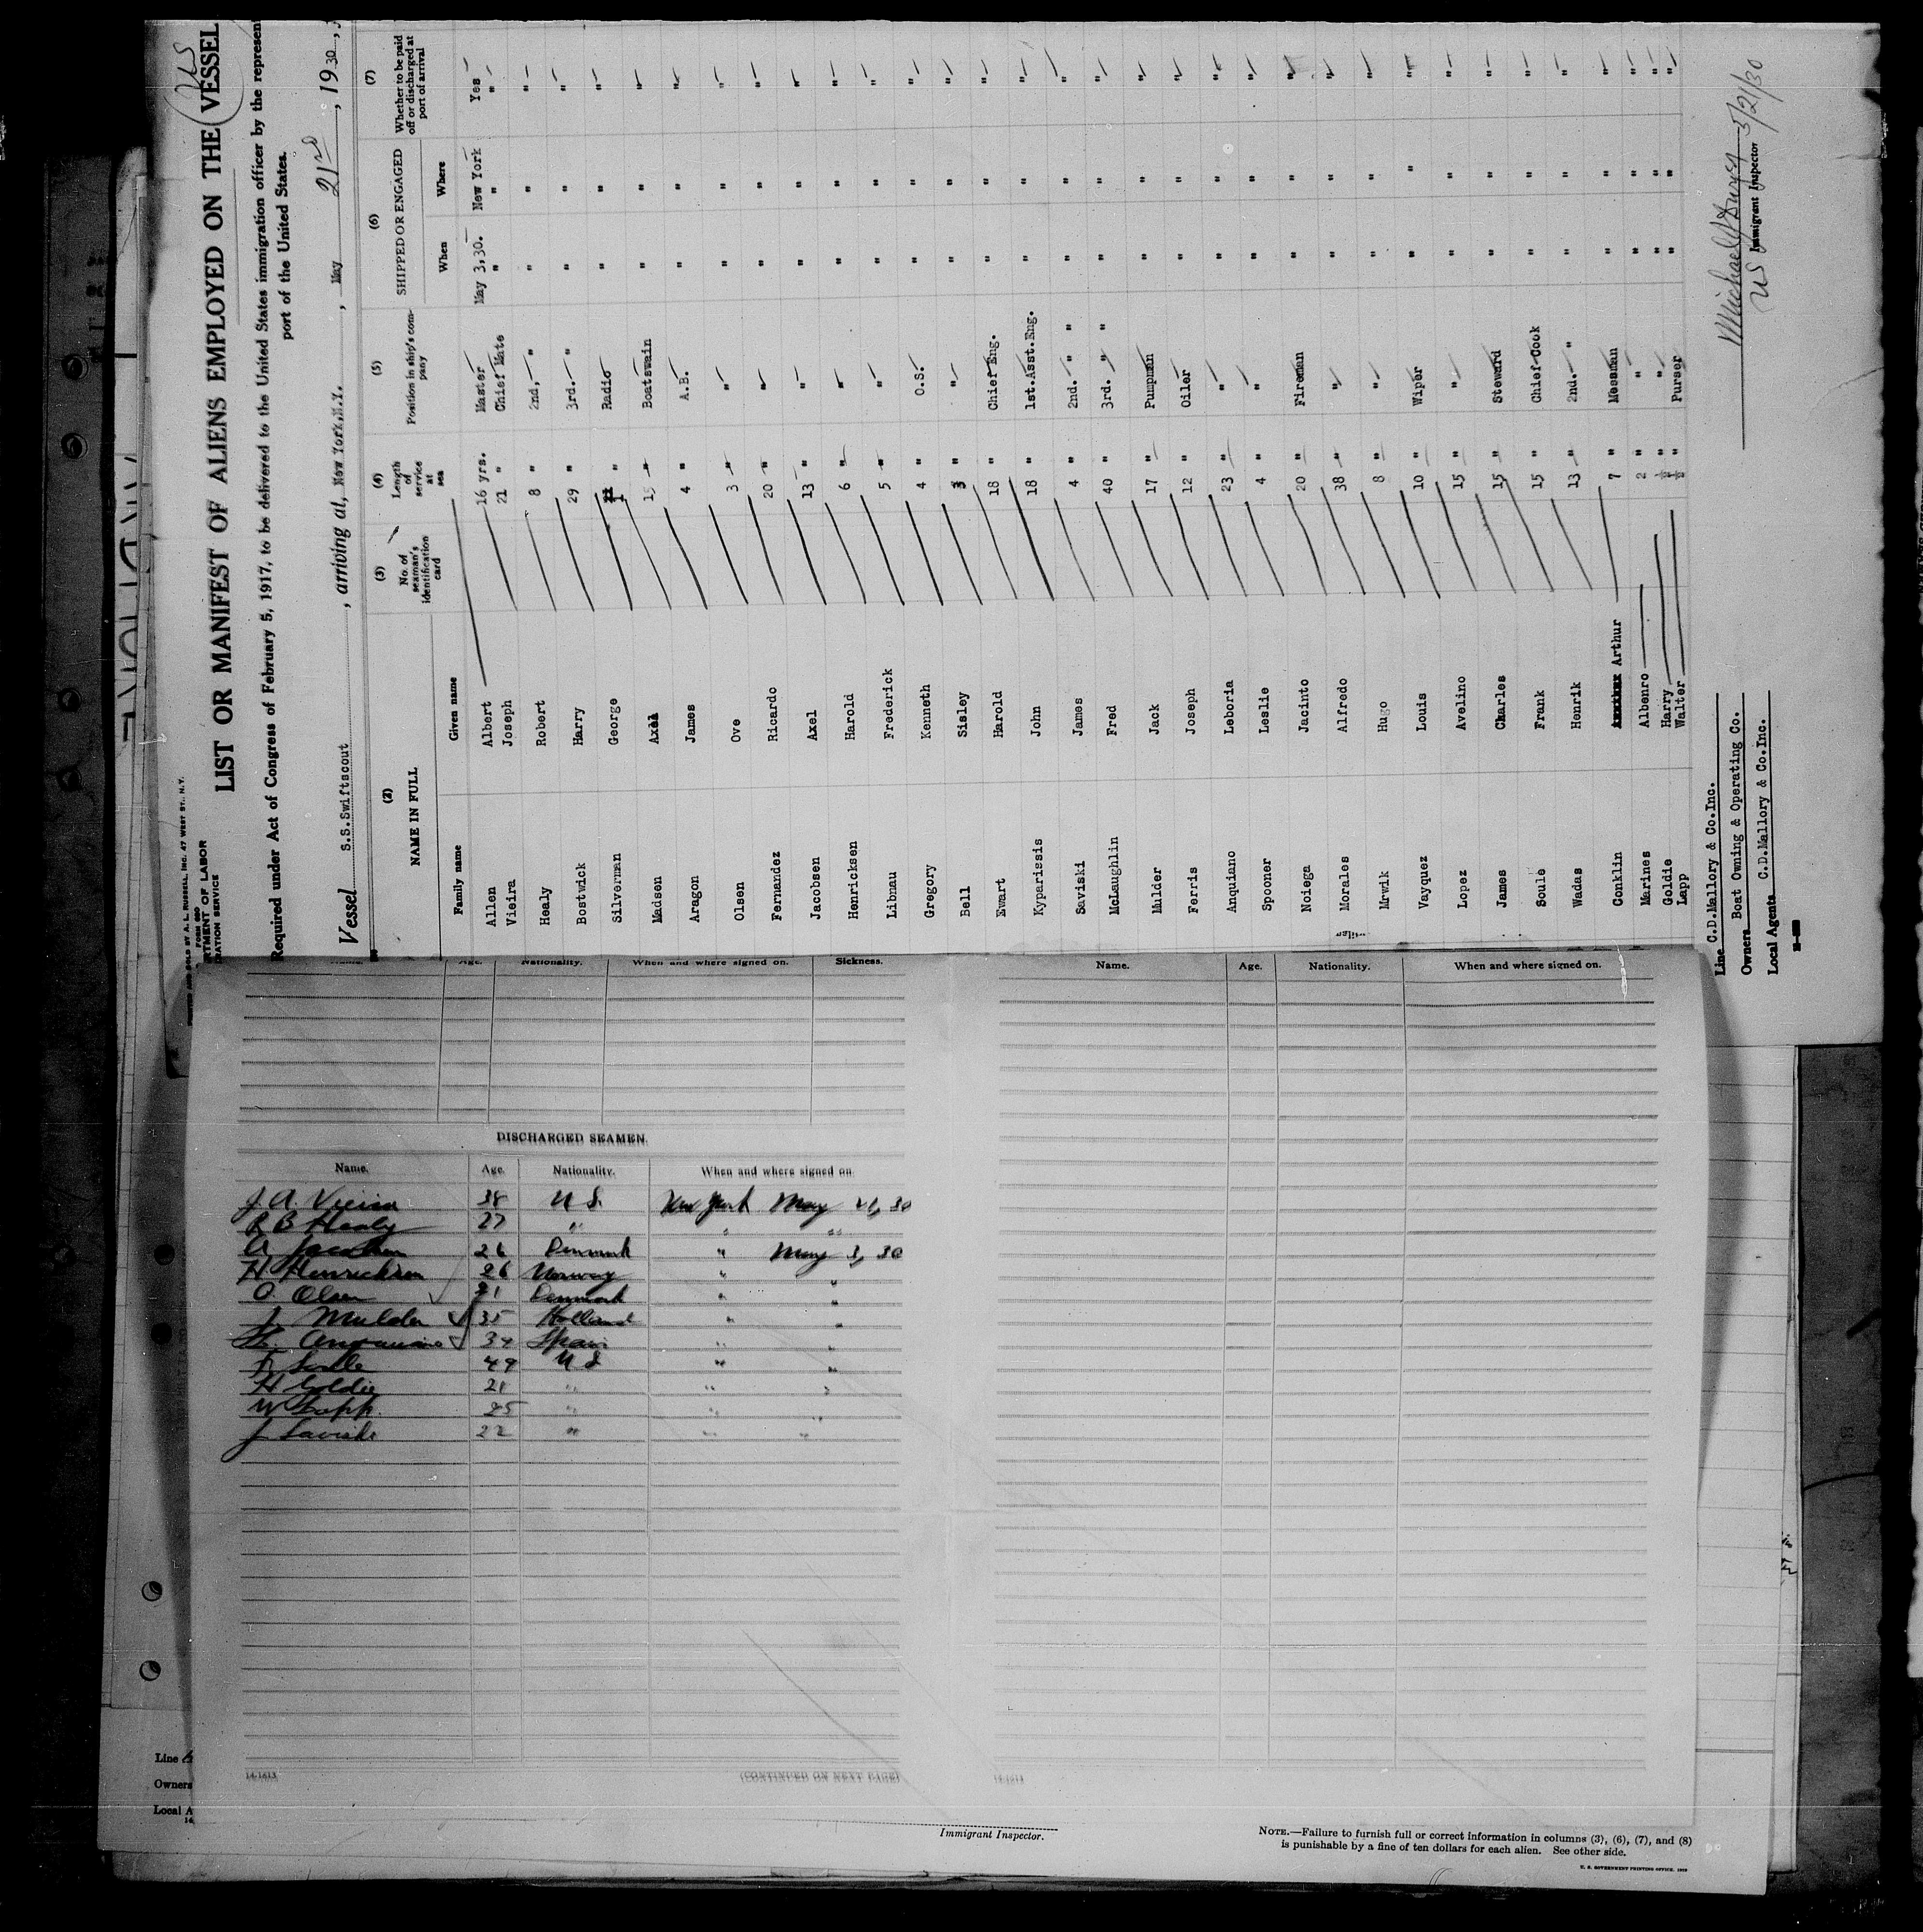 LIST OR MANIFEST OF ALIENS EMPLOYED ON THE VESSEL
Required under Act of Congress of February 5, 1917, to be delivered to the United States immigration officer by the represen
port of the United States.
Vessel S.S.Swiftscout, arriving at, New York,N.Y., May 21, 1930,
(2) NAME IN FULL (3) No. of seaman's identification card (4) Length of service at sea (5) Position in ship's company (6) SHIPPED OR ENGAGED (7) Whether to be paid off or discharged at port of arrival
Family name Given name When Where
Allen Albert 16 yrs. Master May 3,30. New York Yes
Vieira Joseph 21 " Chief Mate " " "
Healy Robert 8 " 2nd. " " " "
Bostwick Harry 29 " 3rd. " " " "
Silverman George 1 " Radio " " "
Madsen Axel 15 " Boatswain " " "
Aragon James 4 " A.B. " " "
Olsen Ove 3 " " " " "
Fernandez Ricardo 20 " " " " "
Jacobsen Axel 13 " " " " "
Henricksen Harold 6 " " " " "
Libnau Frederick 5 " " " " "
Gregory Kenneth 4 " O.S. " " "
Bell Sisley 3 " " " " "
Ewart Harold 18 " Chief Eng. " " "
Kyparissis John 18 " 1st.Asst.Eng. " " "
Saviski James 4 " 2nd. " " " " "
McLaughlin Fred 40 " 3rd. " " " " "
Mulder Jack 17 " Pumpman " " "
Ferris Joseph 12 " Oiler " " "
Anquiano Leboria 23 " " " " "
Spooner Leslie 4 " " " " "
Noiega Jacinto 20 " Fireman " " "
Morales Alfredo 38 " " " " "
Mrwik Hugo 8 " " " " "
Vayquez Louis 10 " Wiper " " "
Lopez Avelino 15 " " " " "
James Charles 15 " Steward " " "
Soule Frank 15 " Chief Cook " " "
Wadas Henrik 13 " 2nd. " " " "
Conklin Arthur 7 " Messman " " "
Marines Albenro 2 " " " " "
Goldie Harry ½ " " " " "
Lapp Walter ½ " Purser " " "
Line C.D.Mallory & Co.Inc.
Owners Boat Owning & Operating Co.
Local Agents C.D.Mallory & Co.Inc.
5/21/30
US Immigrant Inspector
Name. Age. Nationality. When and where signed on. Sickness.
DISCHARGED SEAMEN.
Name. Age. Nationality. When and where signed on.
J A Vieira 38 U S. New York May 21, 30
R B Healy 27 " " "
A Jacobsen 26 Denmark " May 3, 30
H Henricksen 26 Norway " "
O Olsen 21 Denmark " "
J Mulder 35 Holland " "
L. Anquiano 34 Spain " "
F Soule 49 U S " "
H Goldie 21 " " "
W Lapp 25 " " "
J Saviski 22 " " "
14-1613
(CONTINUED ON NEXT PAGE)
Name. Age. Nationality. When and where signed on.
14-1613
Line
Owners
Local A
Immigrant Inspector.
NOTE.—Failure to furnish full or correct information in columns (3), (6), (7), and (8)
is punishable by a fine of ten dollars for each alien. See other side.
U. S. GOVERNMENT PRINTING OFFICE